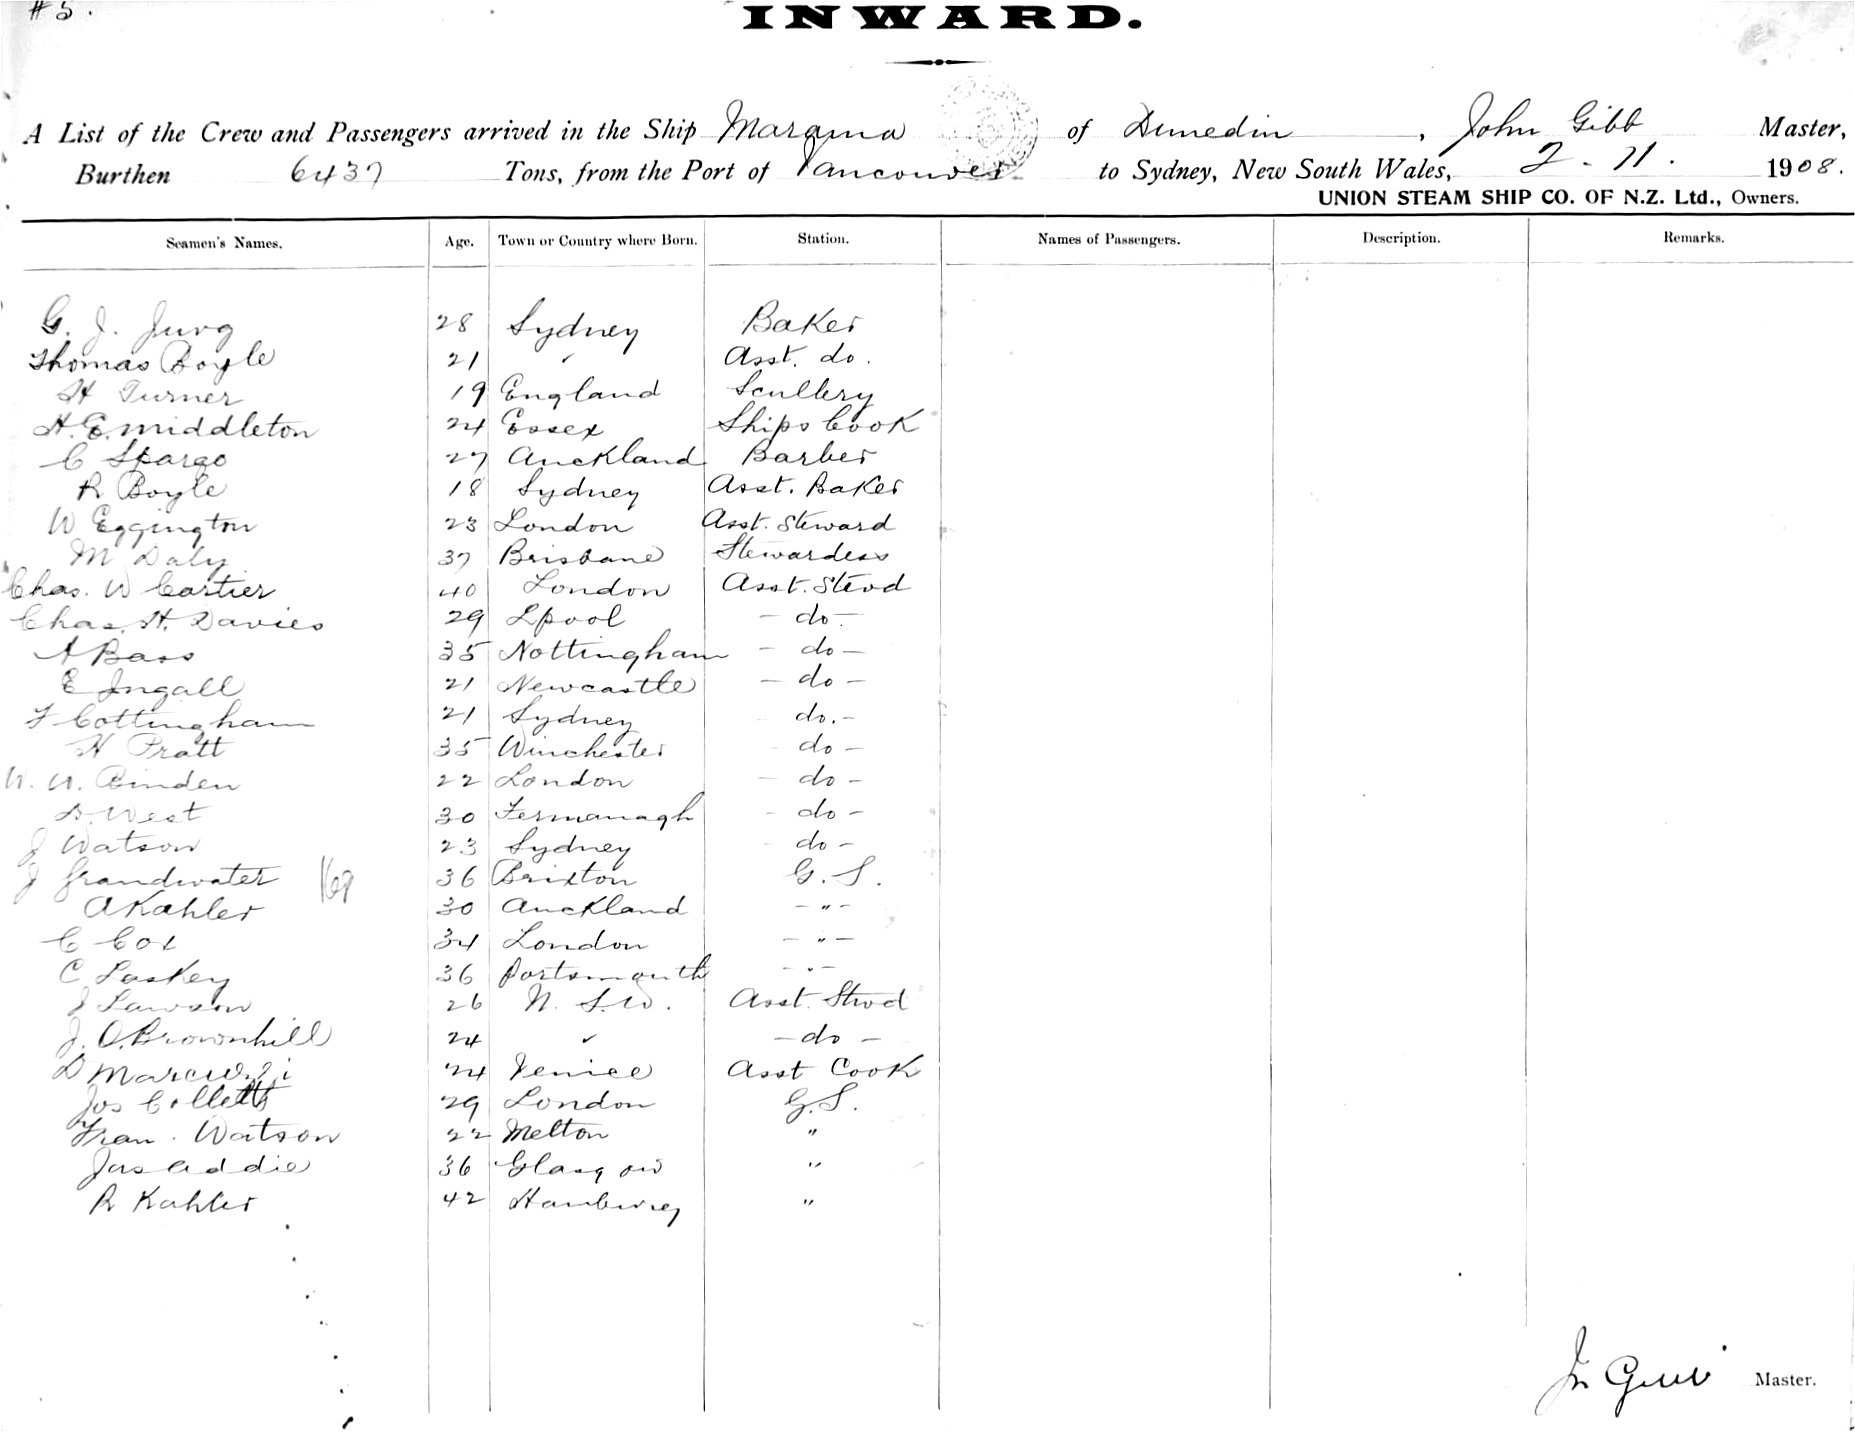 #5.
INWARD.
A List of the Crew and Passengers arrived in the Ship Marama of Dunedin, John Gibb Master,
Burthen 6437 Tons, from the Port of Vancouver to Sydney, New South Wales, 2-11. 1908.
UNION STEAM SHIP CO. OF N.Z. Ltd., Owners.
Seamen's Names. Age. Town or Country where Born. Station. Names of Passengers. Description. Remarks.
G. J. Jurg 28 Sydney Baker
Thomas Boyle 21 " Asst. do.
H Turner 19 England Scullery
H. E. Middleton 24 Essex Ships Cook
C Spargo 27 Auckland Barber
R Boyle 18 Sydney Asst. Baker
W Eggington 23 London Asst. Steward
M Daly 37 Brisbane Stewardess
Chas. W Cartier 40 London Asst. Stevd
Chas. H. Davies 29 Lpool - do -
A Bass 35 Nottingham - do -
E Ingall 21 Newcastle - do -
F Cottingham 21 Sydney do. -
H Pratt 35 Winchester - do -
W. W. Binden 22 London - do -
D. West 30 Fermanagh - do -
J Watson 23 Sydney - do -
J Grandwater 36 Brixton G. S.
A Kahler 30 Auckland - " -
C Cox 34 London - " -
C Laskey 36 Portsmouth - " -
J Lawson 26 N. S. W. Asst. Stwd
J. O. Brownhill 24 " - do -
D 24 Venice Asst Cook
Jos Colletts 29 London G. S.
Fran. Watson 22 Melton "
Jas Addie 36 Glasgow "
R Kahler 42 Hamburg "
Jn Gibb Master.